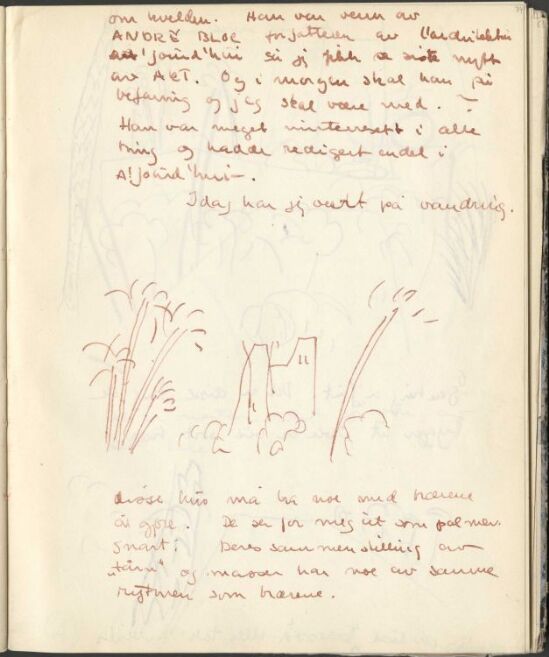 om kvelden. Han var venn av
ANDRÈ BLOC forfatteren av l'architektur
A'jourd'hui så jeg fikk se siste nytt
av ART. Og i morgen skal han på
befaring og jeg skal være med. –
Han var meget interessert i alle
ting og hadde redigert endel i
A'jourd'hui –.
Idag har jeg vært på vandring.
disse hus må ha noe med trærne
å gjøre. De ser for meg ut som palmer.
Snart. Deres sammenstilling av
"tårn" og masser har noe av samme
rytmen som trærne.